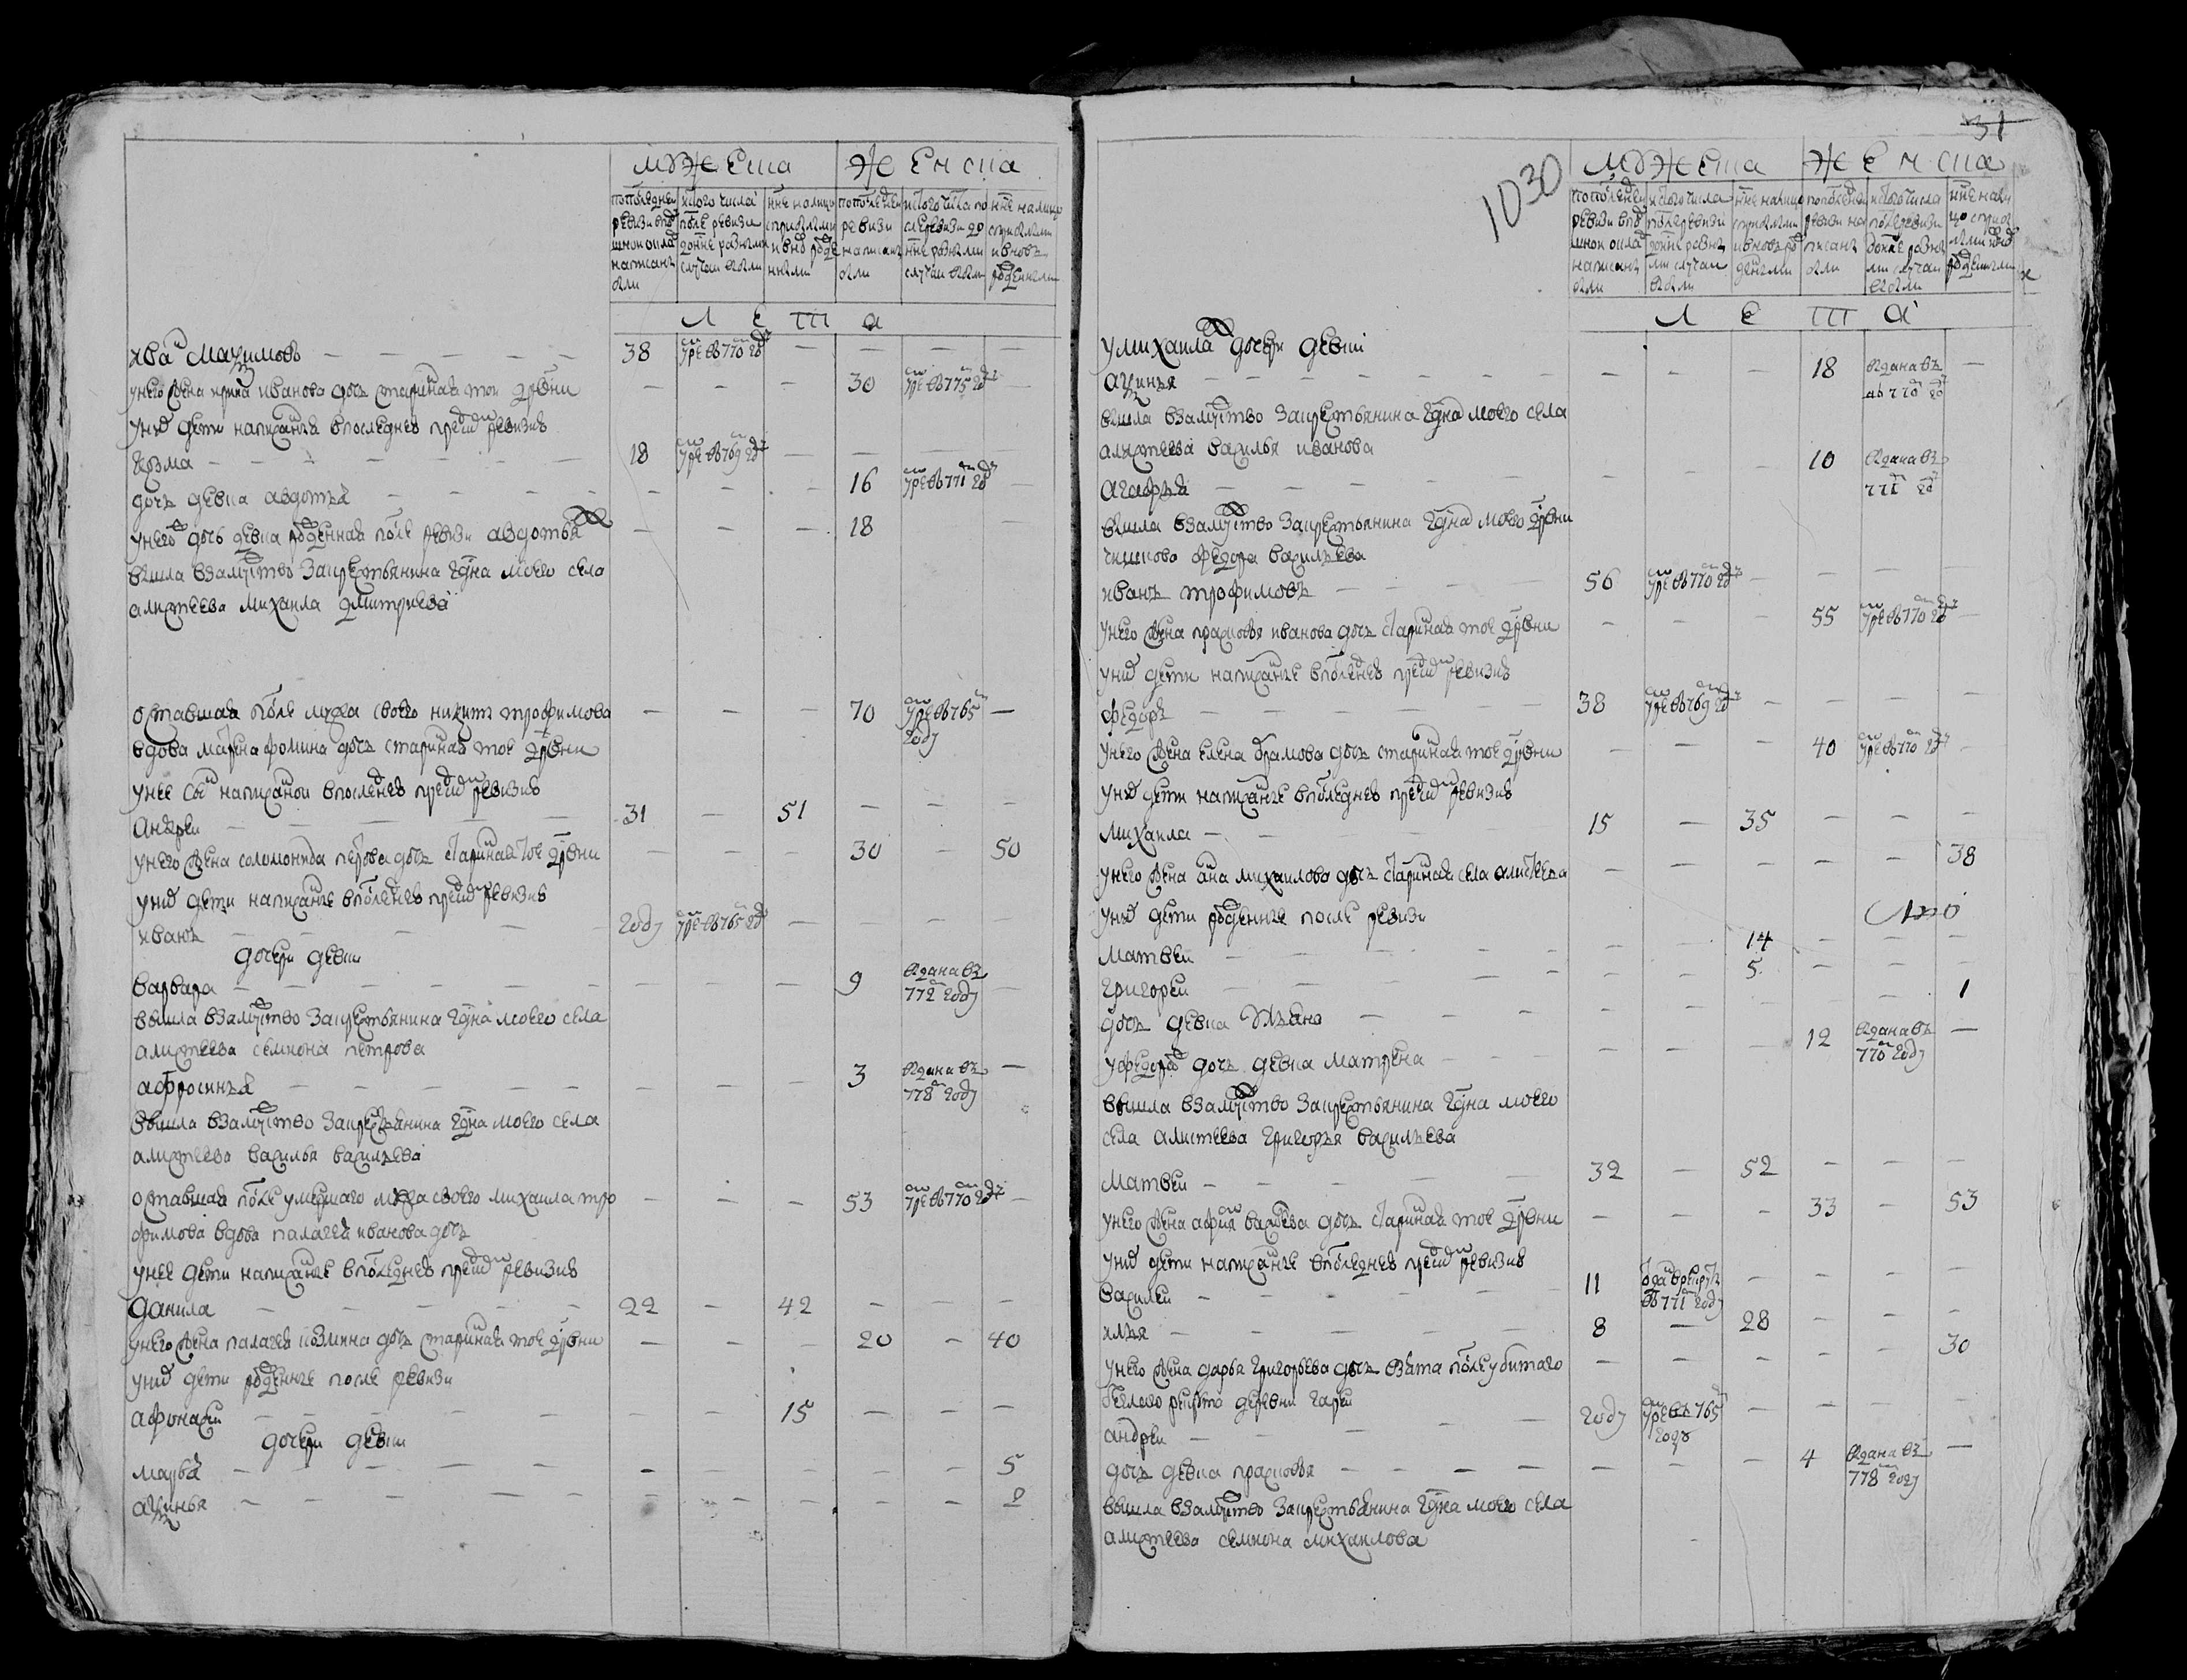 мужеска женска
по последней ревизии в подушной оклад написаны были
ис того числа после ревизии до ныне разными случаи выбыли
ныне на лицо с прибылыми и вновь рожденными
по последней ревизии написаны были
ис того числа после ревизии до ныне разными случаи выбыли
ныне на лицо с прибылыми и вновь рожденными
лета
иван максимовъ — 38 умре въ 770 году — — — —
у него жена ирина иванова дочь старинная тои ж деревни — — — 30 умре въ 775 году —
у них дети написанныя в последней пред сей ревизией
козма — 18 умре въ 769 году — — —
дочь девка авдотья — — — 16 умре въ 771 году —
у него ж дочь девка рожденная после ревизи авдотья — — — 18
вышла в замужство за крестьянина г-дна моего села
алистеева михаила дмитриева
оставшая после мужа своего никиты трофимова — — — 70 умре въ 765 году —
вдова марина фомина дочь старинная тое ж деревни
у нее сын написаной в последней пред сей ревизией
андреи — 31 — 51 — — —
у него жена соломонида петрова дочь старинная тое ж деревни — — — 30 — 50
у них дети написанные в последней пред сей ревизией
иванъ — году умре въ 765 году — — — —
дочери девки
варвара — — — — 9 выдана въ 772 году —
вышла в замужство за крестьянина г-дна моего села
алистеева семиона петрова
афросинья — — — — 3 выдана въ 778 году —
вышла в замужство за крестьянина г-дна моего села
алистеева василья васильева
оставшая после умершаго мужа своего михаила тро — — — 53 умре въ 770 году —
фимова вдова палагея иванова дочь
у нее дети написанные в последней пред сей ревизией
данила — 22 — 42 — — —
у него жена палагея козмина дочь старинная тое ж деревни — — — 20 — 40
у них дети рожденные после ревизи
афонасеи — — 15 — — —
дочери девки
марфа — — — — — 5
аксинья — — — — — 2
31
1030
мужеска женска
по последней ревизии в подушной оклад написаны были
ис того числа после ревизии до ныне разными случаи выбыли
ныне на лицо с прибылыми и вновь рожденными
по последней ревизии написаны были
ис того числа после ревизии до ныне разными случаи выбыли
ныне на лицо с прибылыми и вновь рожденными
лета
у михаила ж дочери девки
аксинья — — — — 18 выдана въ 770 году —
вышла в замужство за крестьянина г-дна моего села
алистеева василья иванова
агафья — — — — 10 выдана въ 771 году
вышла в замужство за крестьянина г-дна моего деревни
федора васильева
иванъ трофимовъ — 56 умре въ 770 году — — — —
у него жена прасковья иванова дочь старинная тое ж деревни — — — 55 умре въ 770 году —
у них дети написанные в последней пред сей ревизией
федоръ — 38 умре въ 769 году — — — —
у него жена елена абрамова дочь старинная тое ж деревни — — — 40 умре въ 770 году —
у них дети написанные в последней пред сей ревизией
михаила — 15 — 35 — — —
у него жена анна михаилова дочь старинная села алистеева — — — — — 38
у них дети рожденные после ревизи
матвеи — — 14 — — —
григореи — — 5 — — —
дочь девка — — — — — 1
у федора ж дочь девка матрена — — — 12 выдана въ 770 году —
вышла в замужство за крестьянина г-дна моего
села алистеева григорья васильева
матвеи — 32 — 52 — — —
у него жена васильева дочь старинная тое ж деревни — — — 33 — 53
у них дети написанные в последней пред сей ревизией
василеи — 11 отдан в рекруты въ 771 году — — — —
илья — 8 — 28 — — —
у него жена дарья григорьева дочь взята после убитаго — — — — — 30
беглаго рекрута деревни гареи
андреи — году умре въ 765 году — — — —
дочь девка прасковья — — — 4 выдана въ 778 году —
вышла в замужство за крестьянина г-дна моего села
алистеева семиона михаилова